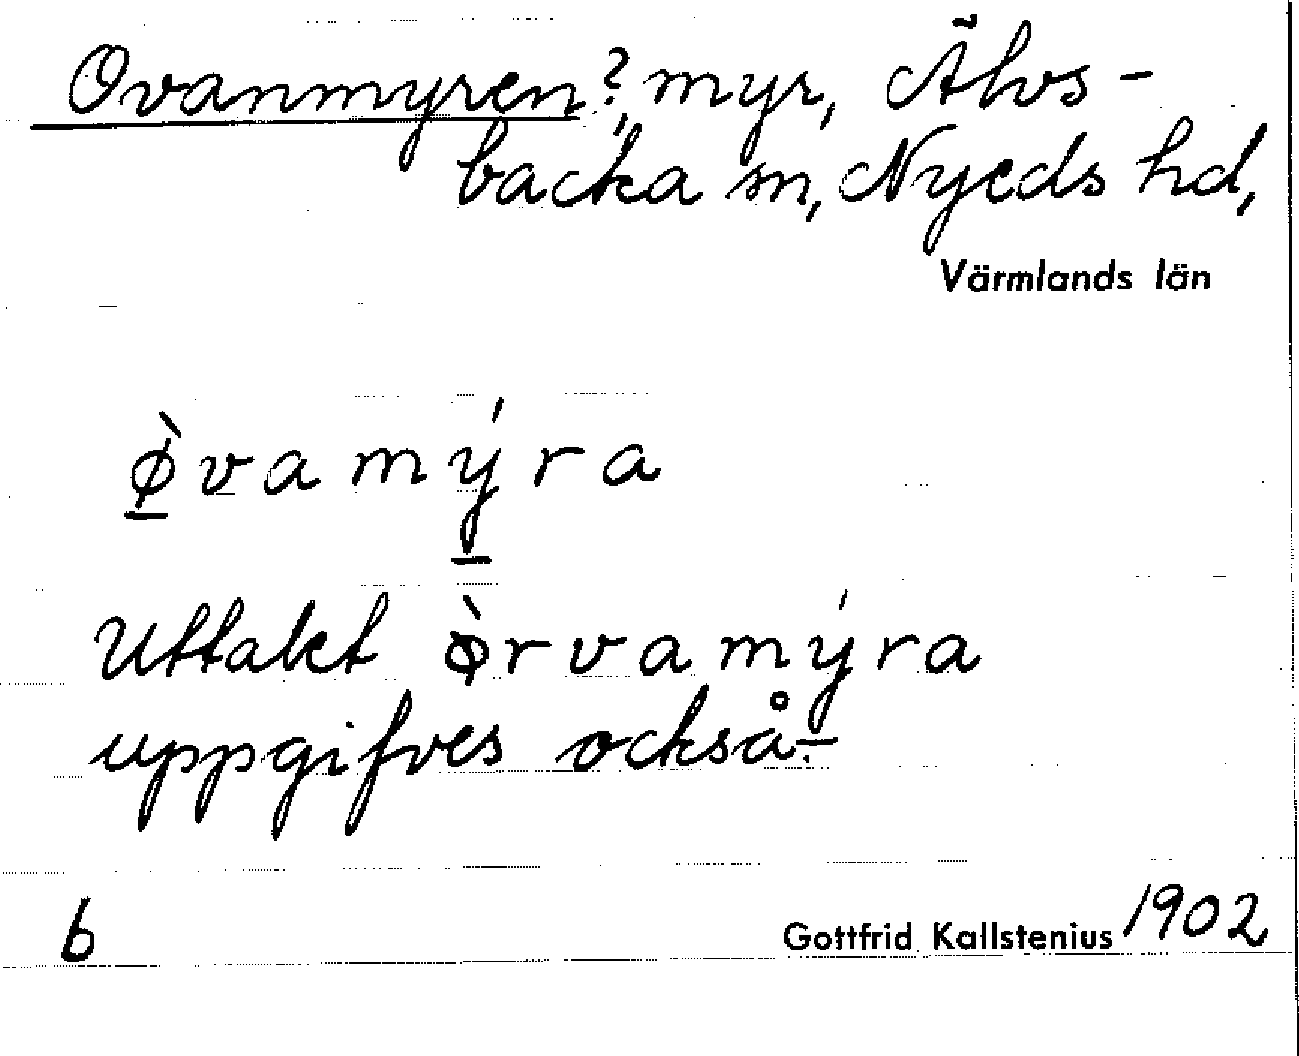 Ovanmyren?, myr, Älvs-
backa sn, Nyeds hd,
Värmlands län
ø̱̀vamý̱ra
Uttalet ø̀rvamý̱ra
uppgifves också.
b
Gottfrid Kallstenius 1902